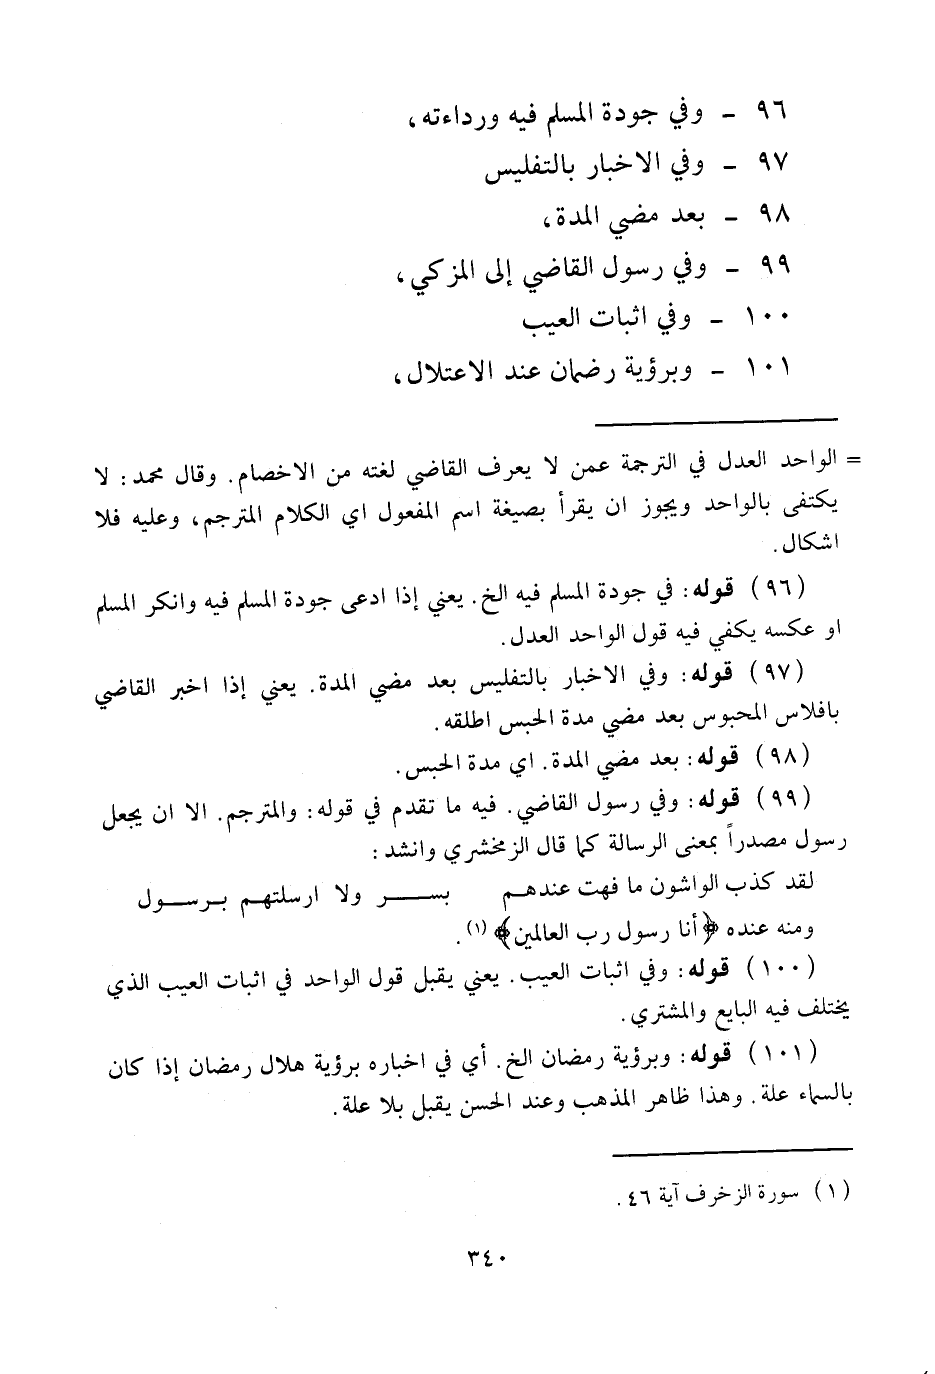 ٩٦ ـ وفي جودة المسلم فيه ورداءته،
٩٧ ـ وفي الاخبار بالتفليس
٩٨ ـ بعد مضي المدة،
٩٩ ـ وفي رسول القاضي إلى المزكي،
١٠٠ ـ وفي اثبات العيب
١٠١ ـ وبرؤية رضمان عند الاعتلال،
= الواحد العدل في الترجمة عمن لا يعرف القاضي لغته من الاخصام. وقال محمد: لا
يكتفى بالواحد ويجوز ان يقرأ بصيغة اسم المفعول اي الكلام المترجم، وعليه فلا
اشكال.
(٩٦) قوله: في جودة المسلم فيه الخ. يعني إذا ادعى جودة المسلم فيه وانكر المسلم
او عكسه يكفي فيه قول الواحد العدل.
(٩٧) قوله: وفي الاخبار بالتفليس بعد مضي المدة. يعني إذا اخبر القاضي
بافلاس المحبوس بعد مضي مدة الحبس اطلقه.
(٩٨) قوله: بعد مضي المدة. اي مدة الحبس.
(٩٩) قوله: وفي رسول القاضي. فيه ما تقدم في قوله: والمترجم. الا ان يجعل
رسول مصدراً بمعنى الرسالة كما قال الزمخشري وانشد:
لقد كذب الواشون ما فهت عندهم بســـر ولا ارسلتهم برســـول
ومنه عنده ﴿أنا رسول رب العالمين﴾ (١).
(١٠٠) قوله: وفي اثبات العيب. يعني يقبل قول الواحد في اثبات العيب الذي
يختلف فيه البايع والمشتري.
(١٠١) قوله: وبرؤية رمضان الخ. أي في اخباره برؤية هلال رمضان إذا كان
بالسماء علة. وهذا ظاهر المذهب وعند الحسن يقبل بلا علة.
(١) سورة الزخرف آية ٤٦.
٣٤٠